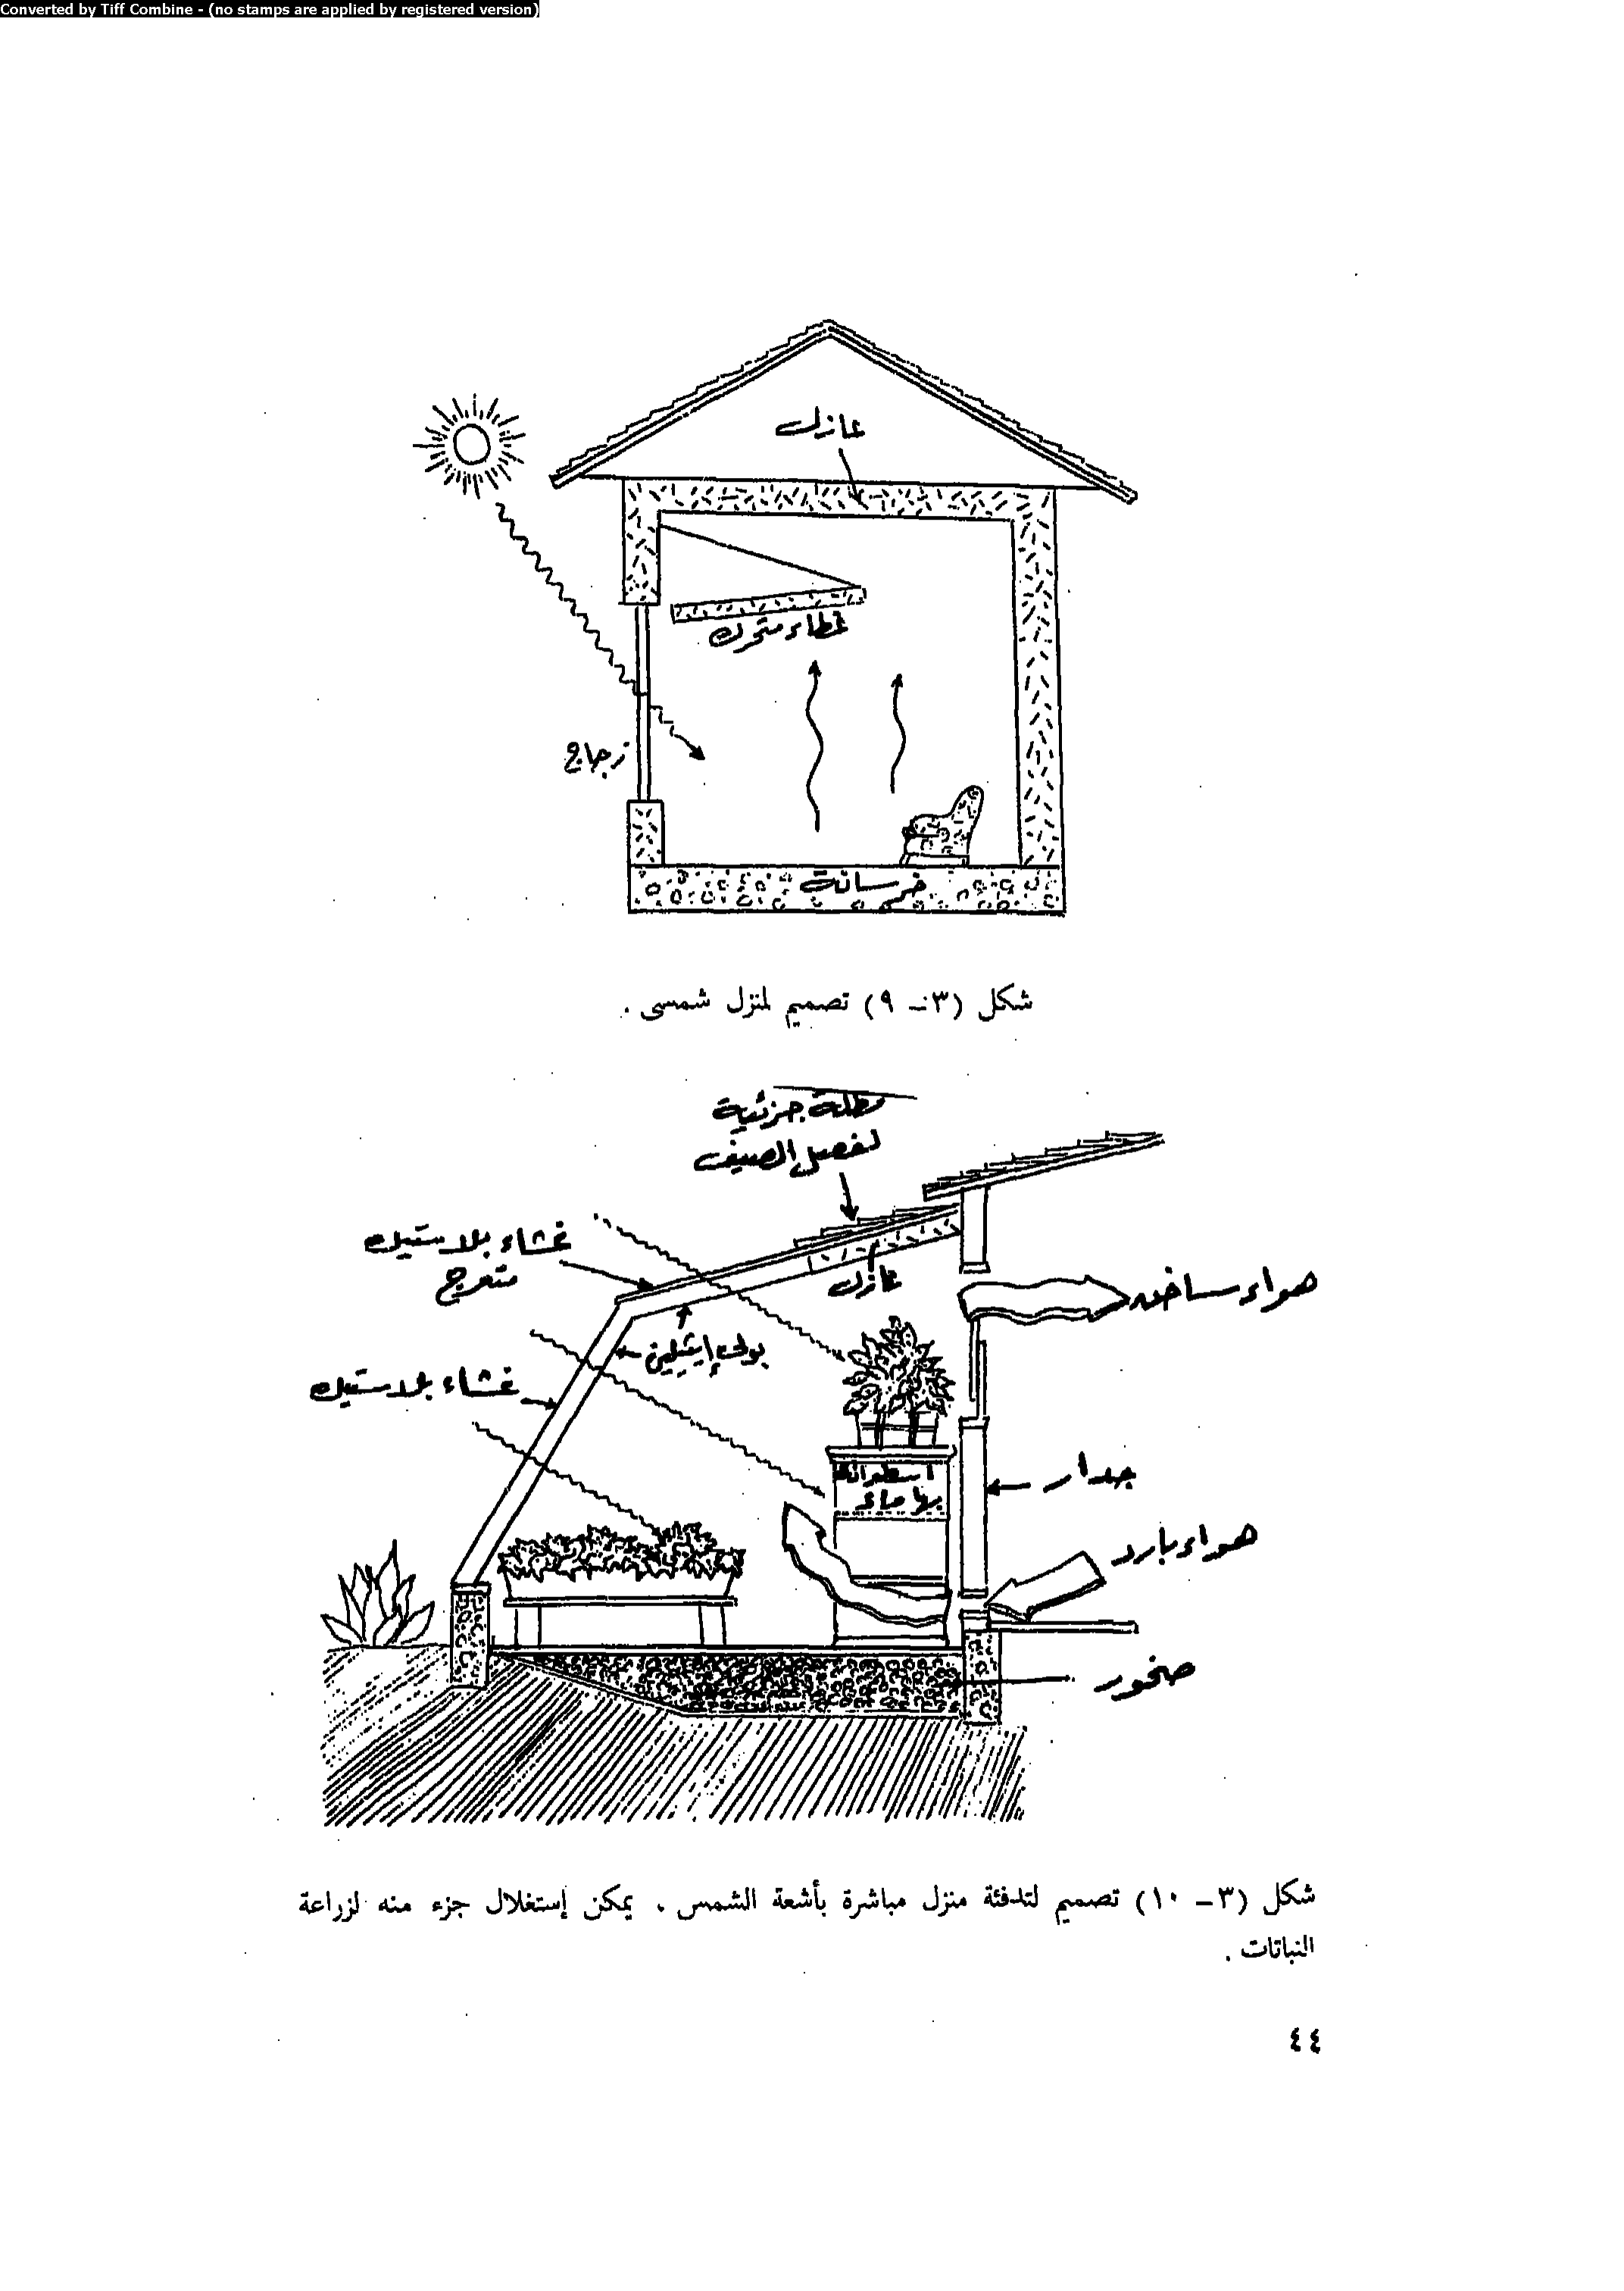 Converted by Tiff Combine - (no stamps are applied by registered version)
عازل
غطاء متحرك
زجاج
خرسانة
شكل (٣ – ٩) تصميم لمنزل شمسى .
مظلة جزئية
لفصل الصيف
غشاء بلاستيك
متعرج
عازل
هواء ساخن
بولى إيثيلين
غشاء بلاستيك
اسطوانة
بها ماء
جدار
هواء بارد
صخور
شكل (٣ – ١٠) تصميم لتدفئة منزل مباشرة بأشعة الشمس . يمكن إستغلال جزء منه لزراعة
النباتات .
٤٤